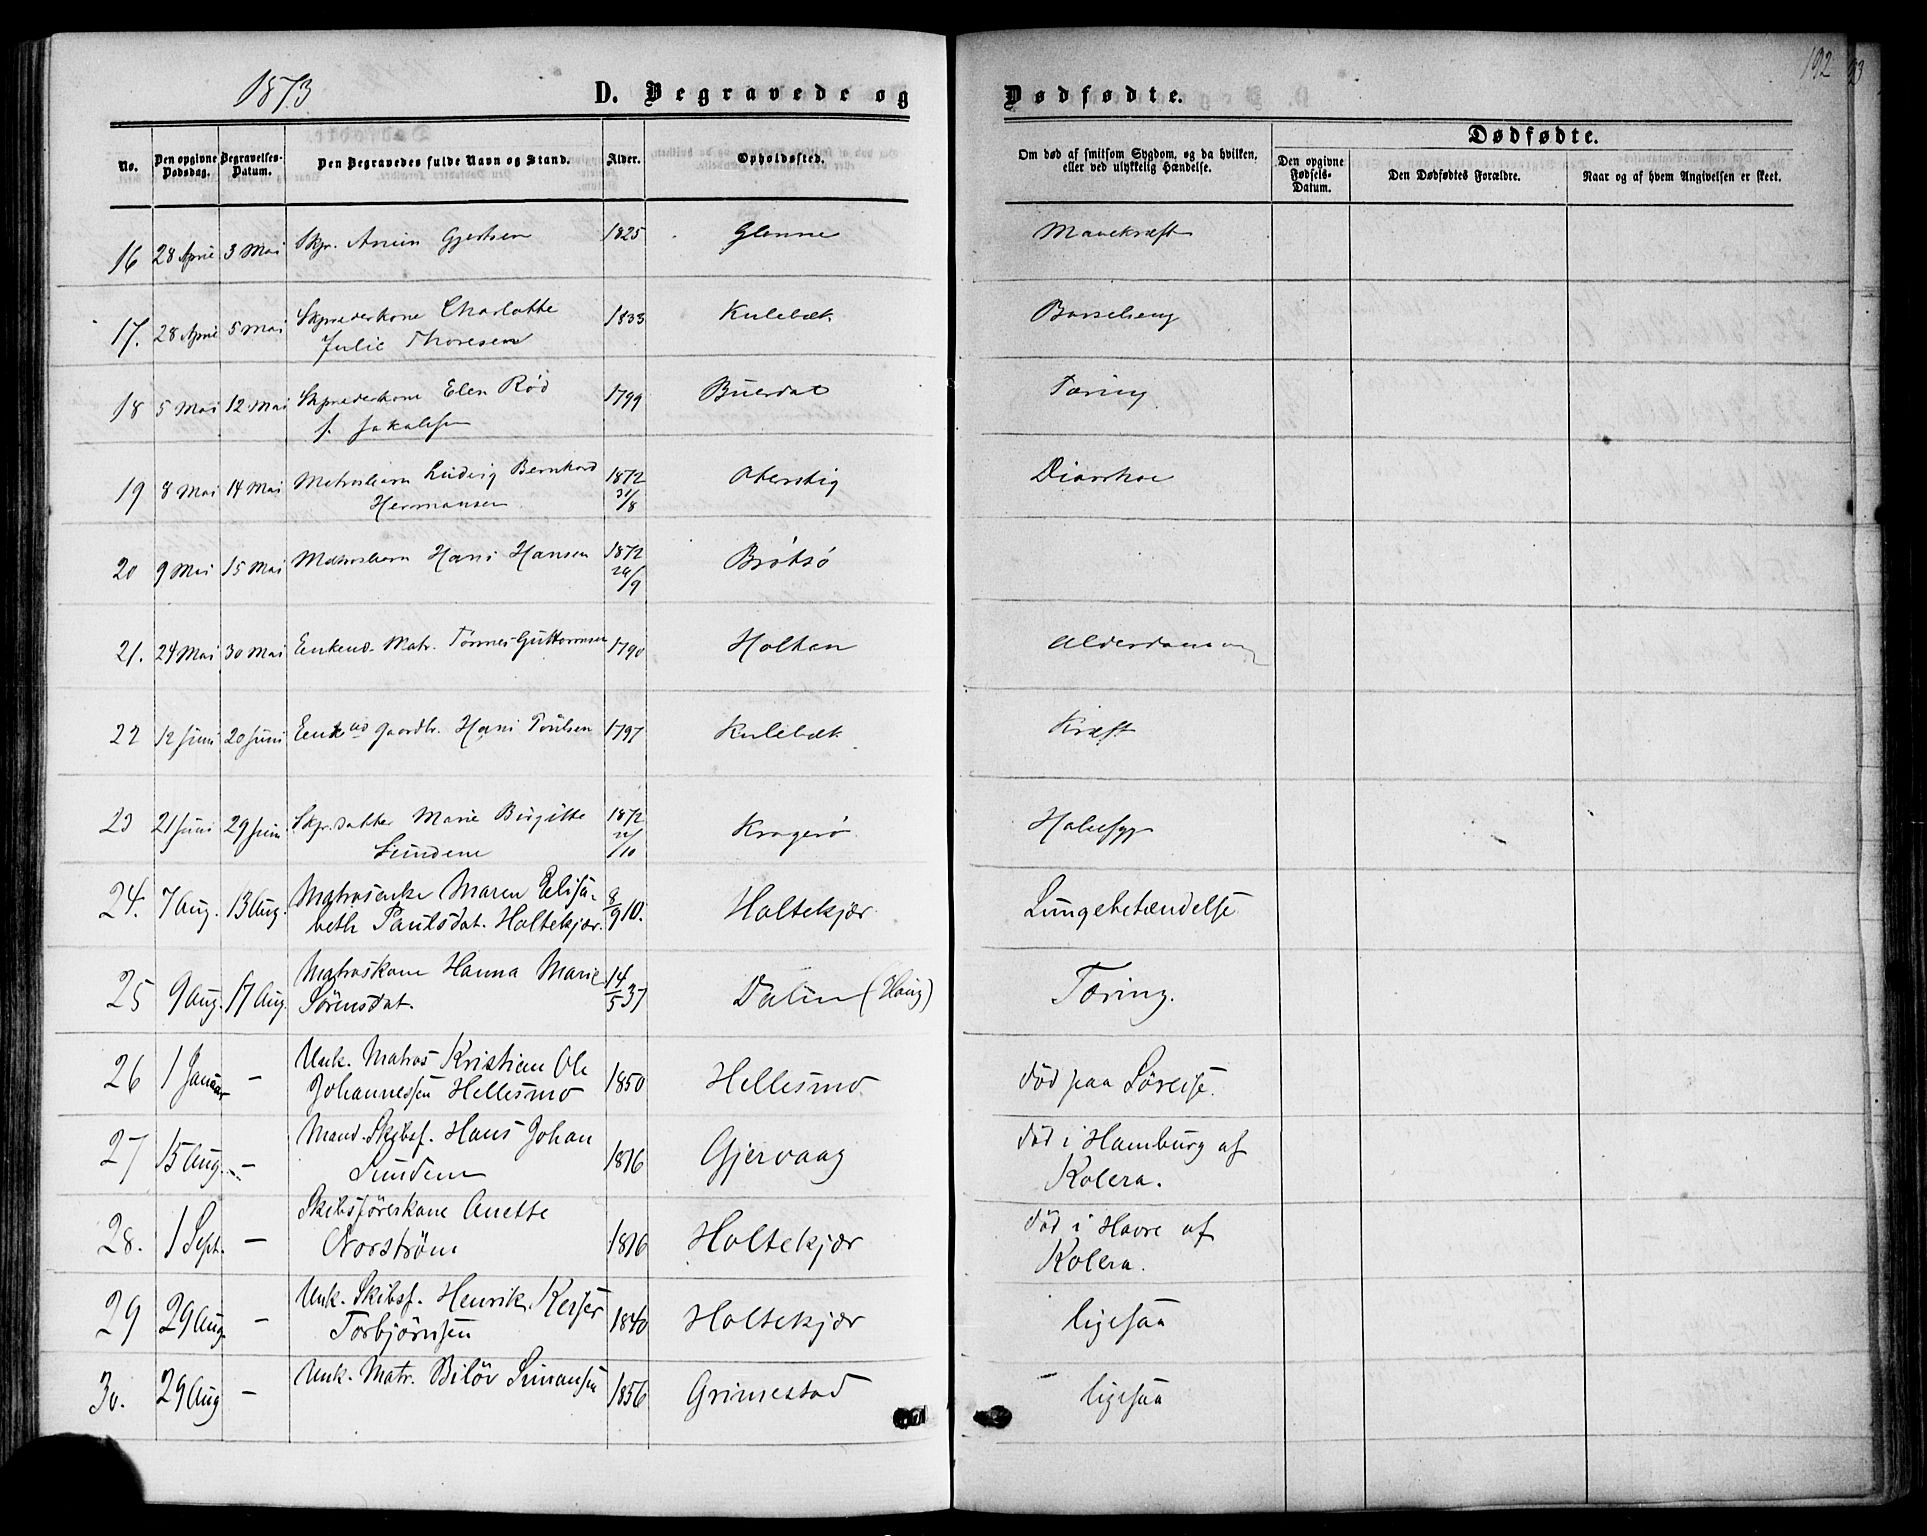 1873
D. Begravede og Dødfødte.
192
No. Den opgivne Dødsdag. Begravelses-Datum. Den Begravedes fulde Navn og Stand. Alder. Opholdssted. Om død af smitsom Sygdom, og da hvilken, eller ved ulykkelig Hændelse.
Dødfødte.
Den opgivne Fødsels-Datum. Den Dødfødtes Forældre. Naar og af hvem Angivelsen er skeet.
16 28 April 3 Mai Skpr. Gjertsen 1825 Glenne Mavekræft
17. 28 April 5 Mai Charlotte 1833 Kulebæk Barselseng
Julie Thoresen
18 5 Mai 12 Mai Elen Rød 1799 Buerdal Tæring
f. Jakobsen
19 8 Mai 14 Mai Matrosbarn Ludvig Bernhard 1872 Diarrhoe
Hermansen 31/8
20 9 Mai 15 Mai Matrosbarn Hans Hansen 1872 Brøtsø
/9
21. 24 Mai 30 Mai Enkemd. Matr. Guttormsen 1790 Holtan
22 12 Juni 20 Juni Gaardbr. Hans Poulsen 1797 Kulebæk Kræft
23 21 Juni 29 Juni Skpr. datter Marie Birgitte 1872 Kragerø Halssyge
Sundene /10
24. 7 Aug. 13 Aug. Matrosenke Maren Elisa- 8/9 10. Holtekjær Lungebetændelse
beth Paulsdat. Holtekjær.
25 9 Aug. 17 Aug. Matroskone Hanna Marie 14/5 37 Dalen (Haug) Tæring.
Sørensdat.
26 1 Januar — Unk. Matros Kristian Ole 1850 Hellesmo død paa Søreise.
Johannessen Hellesmo
27 15 Aug. — Skibsf. Hans Johan 1816 Gjervaag død i Hamburg af
Sundene Kolera.
28. 1 Sept. — Skibsførerkone Anette 1816 Holtekjær død i Havre af
Norstrøm Kolera.
29 29 Aug. — Unk. Skibsf. Henrik 1840 Holtekjær ligesaa
Torbjørnsen
30. 29 Aug — Unk. Matr. Simonsen 1856 Grimestad ligesaa